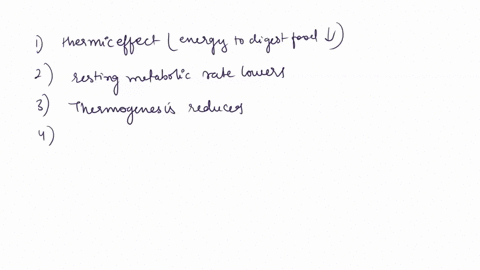 1) thermic effect ( energy to digest food ↓ )
2) resting metabolic rate lowers
3) Thermogenesis reduces
4)